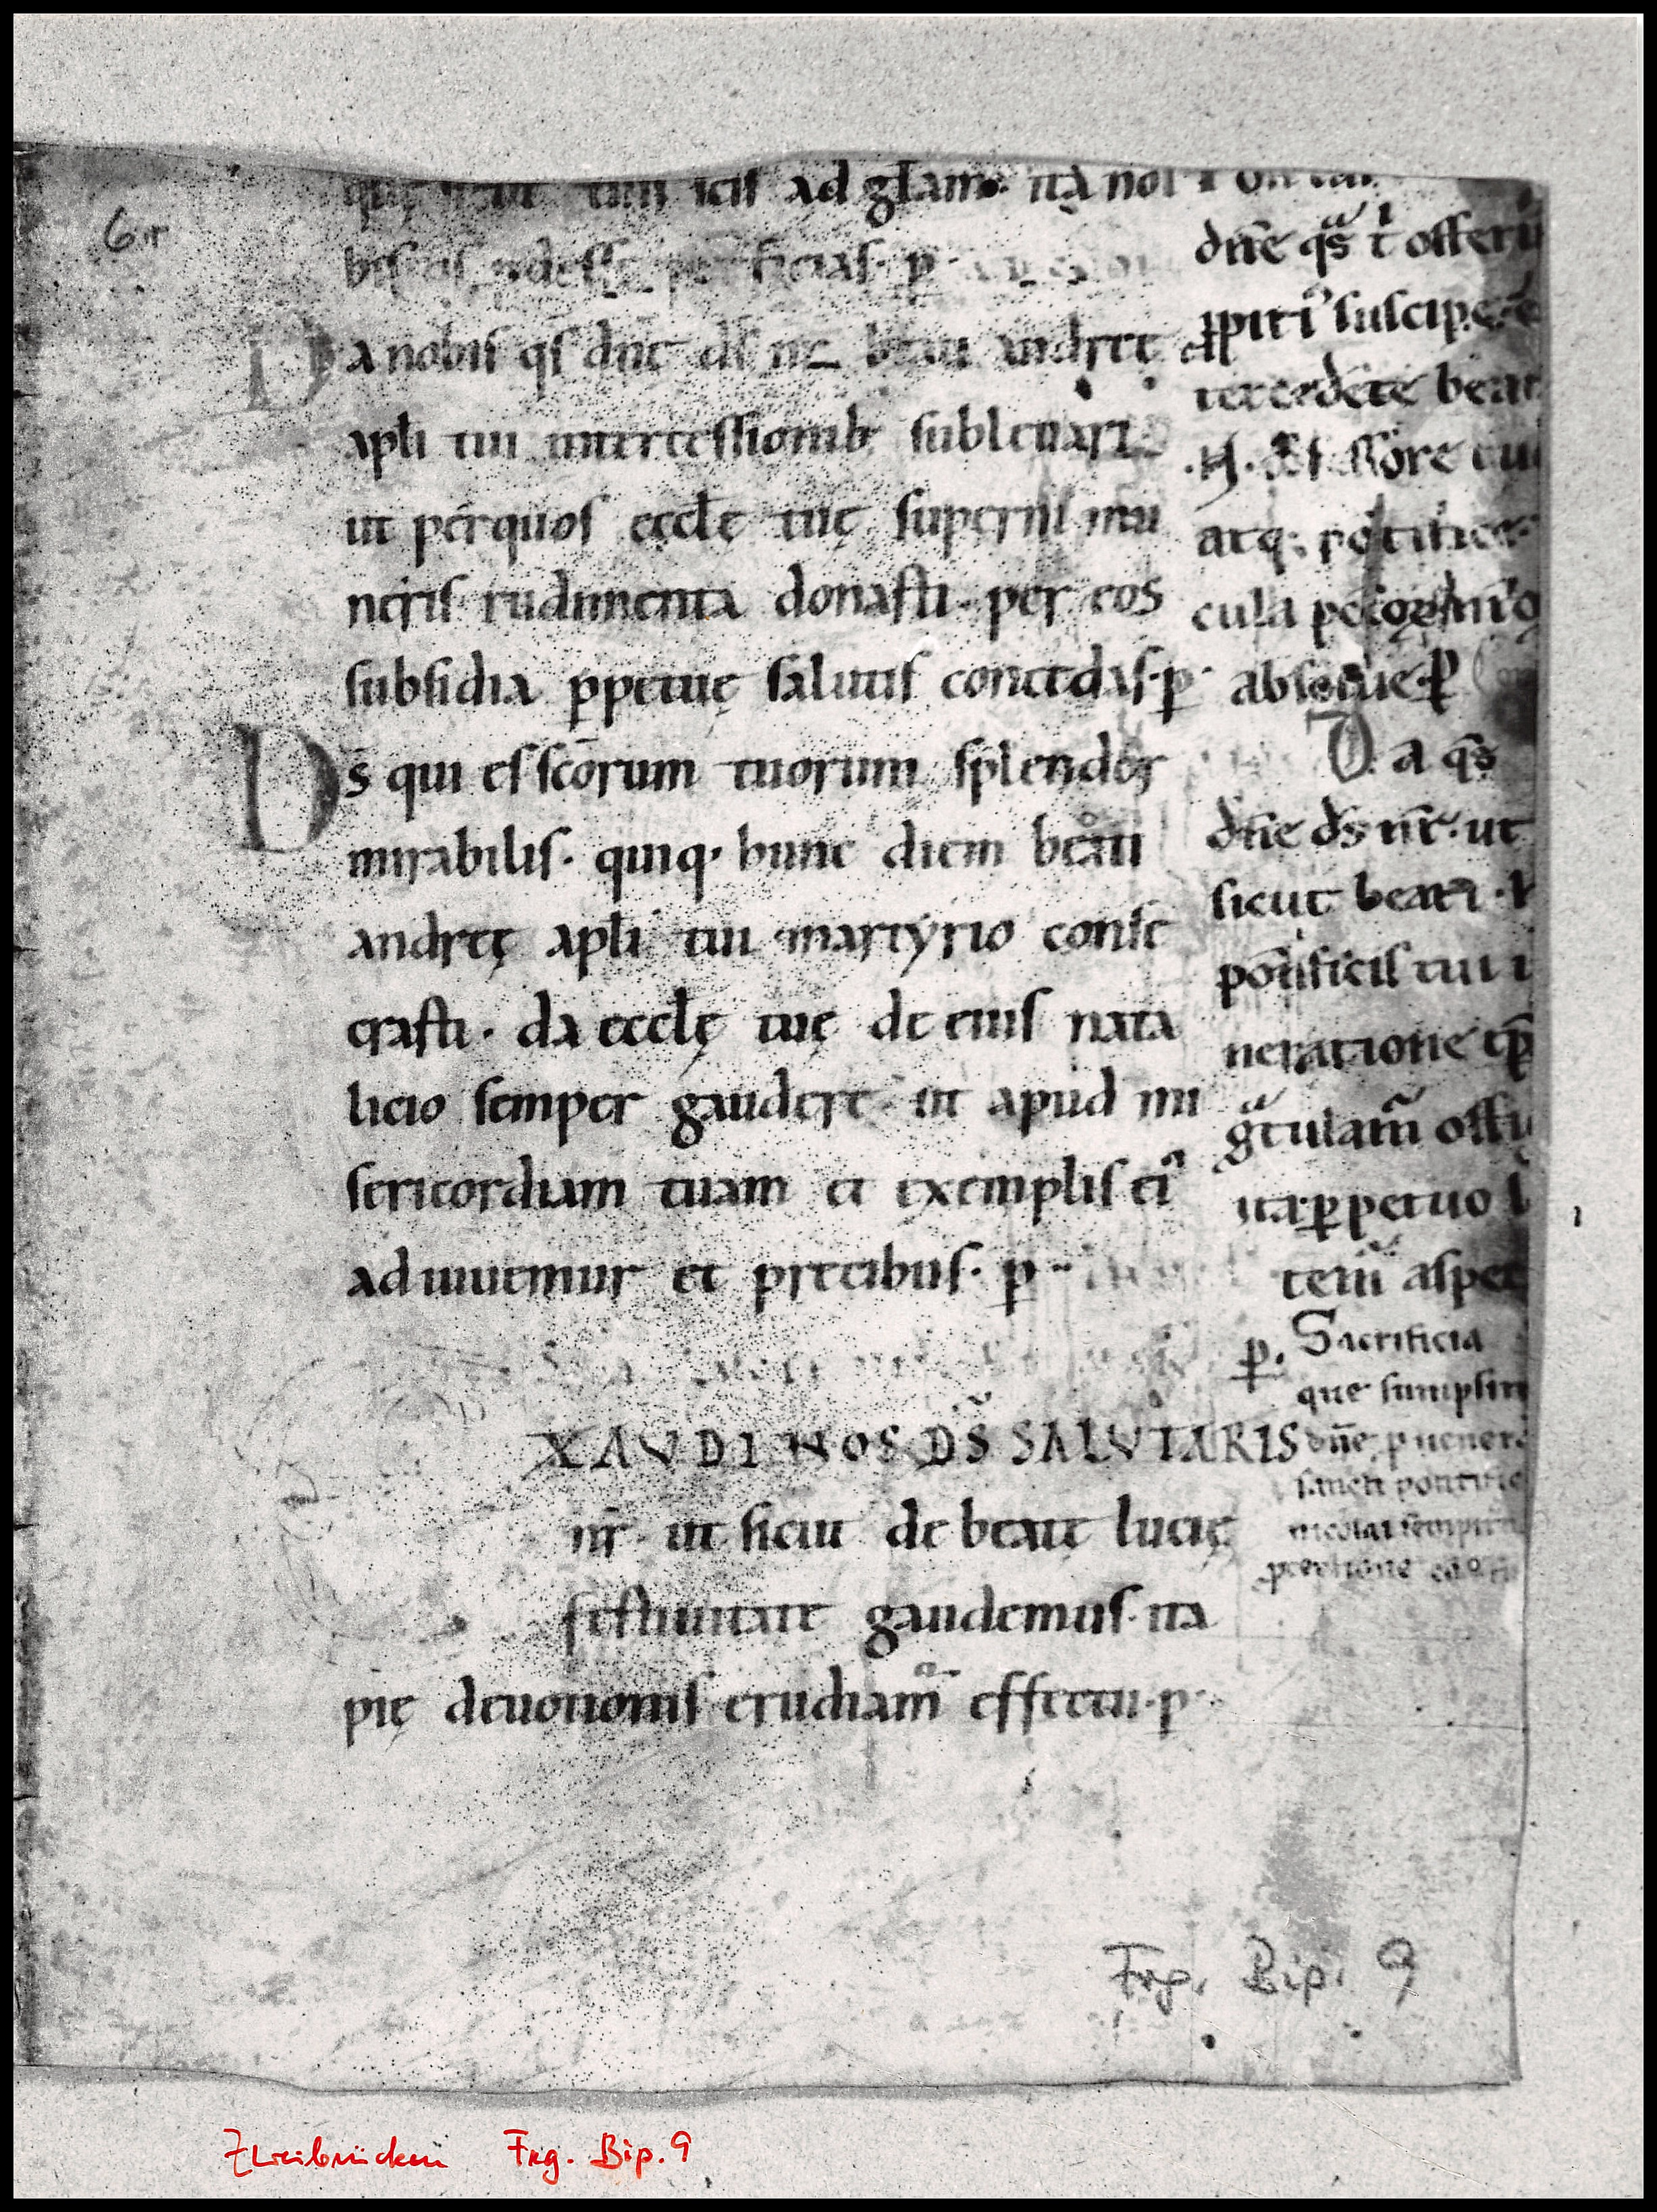 6r
ad gl̄am· ita nob
biscis adesse perficias· p̱
Da nobis q̄s dn̄e ds̄ nr̄ beati andreę
apl̄i tui intercessionib; subleuari·
ut per quos eccl̄ę tuę superni mu
neris rudimenta donasti· per eos
subsidia ꝑpetuę salutis concedas· p̱
Ds̄ qui es sc̄orum tuorum splendor
mirabilis· quiq· hunc diem beati
andreę apl̄i tui martyrio conse
crasti· da eccl̄ę tuę de eius nata
licio semper gaudere· ut apud mi
sericordiam tuam et exemplis eiꝰ
adiuuemur et precibus· p̱
XAVDI NOS DS̄ SALVTARIS
nr̄· ut sicut de beatę lucię
festiuitate gaudemus· ita
pię deuotionis erudiam̄ effectu· p̱
dn̄e q̄s t offeri
ꝓpitiꝰ suscipe· &
tercedēte beat
.N. ꝯfessore tuo
atq; pōtifice·
cula pctōꝝ nr̄oꝝ
absolue· ꝑ
Da q̄s
dn̄e ds̄ nr̄· ut
sicut beati ·N
pontificis tui i
neratione
gͣtulam̄ offi
ita ꝑpetuo l
tem̄ aspec
p̱. Sacrificia
que sumpsim
dn̄e, p uener
sancti pontific
nicolai sempit
ꝓtectione
Frg. Bip. 9
Zweibrücken Frg. Bip. 9